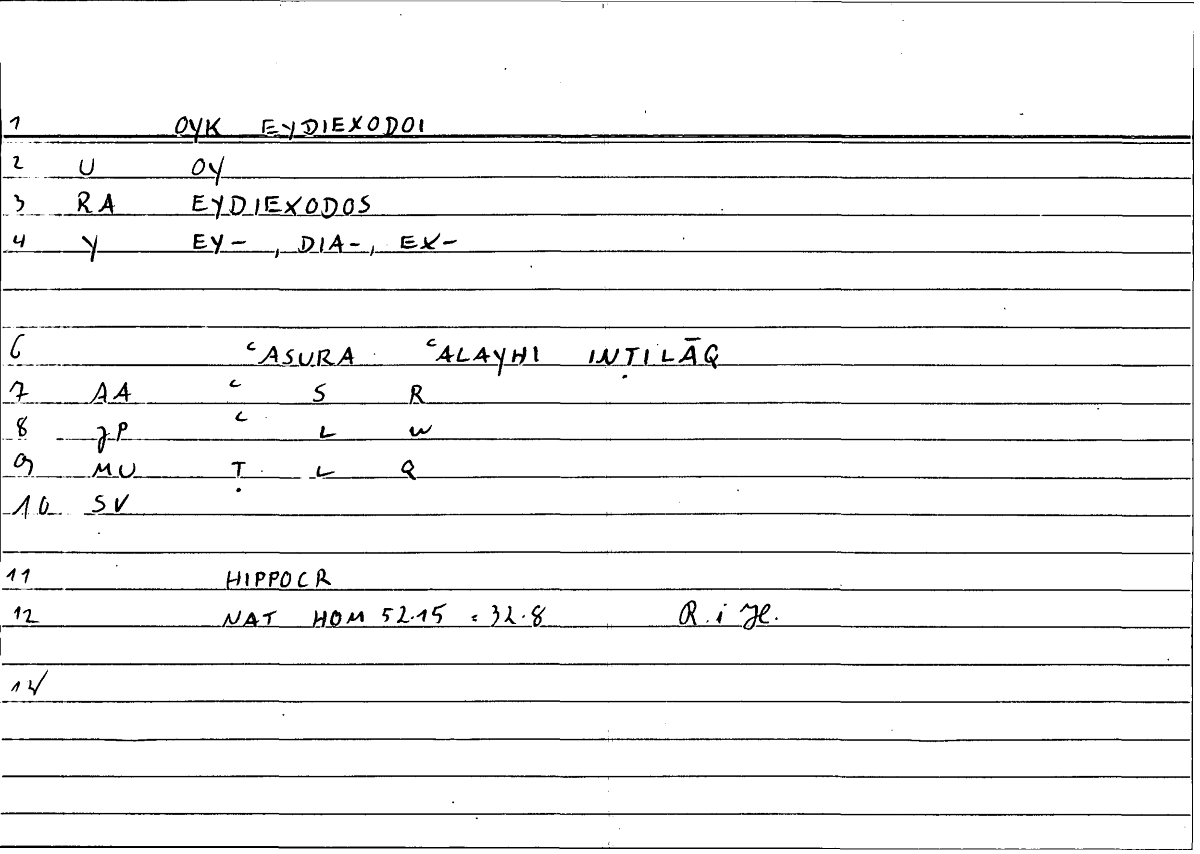 1 OYK EYDIEXODOI
2 U OY
3 RA EYDIEXODOS
4 Y EY-, DIA-, EX-
6 ʿASURA ʿALAYHI INṬILĀQ
7 AA ʿ S R
8 JP ʿ L W
9 MU Ṭ L Q
10 SV
11 HIPPOCR
12 NAT HOM 52.15 = 32.8 R. i